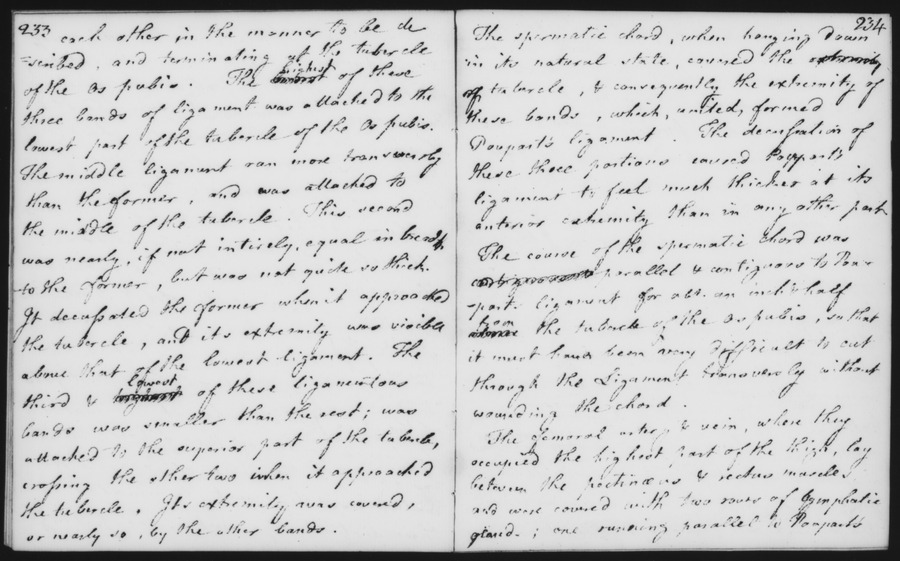 233
each other in the manner to be de
=scribed, and terminating at the tubercle
of the Os pubis. The highest of these
three bands of ligament was attached to the
lowest part of the tubercle of the Os pubis.
The middle ligament ran more transversly
than the former, and was attached to
the middle of the tubercle. This second
was nearly, if not intirely, equal in breadth
to the former, but was not quite so thick.
It decussated the former when it approached
the tubercle, and its extremity was visible
above that of the lowest ligament. The
third & lowest of these ligamentous
bands was smaller than the rest; was
attached to the superior part of the tubercle,
crossing the other two when it approached
the tubercle. Its extremity was coverd,
or nearly so, by the other bands.
234
The spermatic chord, when hanging down
in its natural state, covered the extremity
of tubercle, & consequently the extremity of
these bands, which, united, formed
Poupart's ligament. The decussation of
these three portions caused Poupart's
ligament to feel much thicker at its
anterior extremity than in any other part.
The course of the spermatic chord was
parallel & contiguous to Pou=
=part's ligament for abt. an inch & half
from the tubercle of the Os pubis, so that
it must have been very difficult to cut
through the Ligament transversly without
wounding the chord.
The femoral artery & vein, where they
occupied the highest part of the thigh, lay
between the pectinæus & rectus muscles
and were covered with two rows of lymphatic
gland.; one running parallel to Poupart's